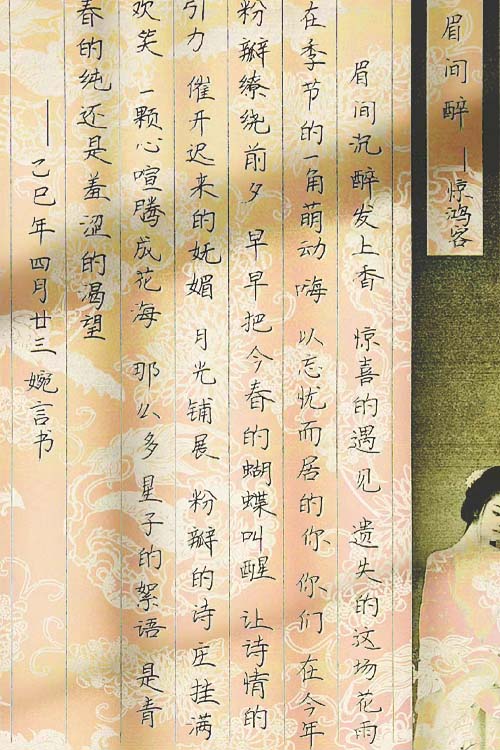 眉间醉 — 惊鸿客
眉间沉醉发上香 惊喜的遇见 遗失的这场花雨
在季节的一角萌动 嗨 以忘忧而居的你 你们 在今年
粉瓣缭绕前夕 早早把今春的蝴蝶叫醒 让诗情的
引力 催开迟来的妩媚 月光铺展 粉瓣的诗庄挂满
欢笑 一颗心喧腾成花海 那么多星子的絮语 是青
春的纯还是羞涩的渴望
——乙巳年四月廿三 婉言书